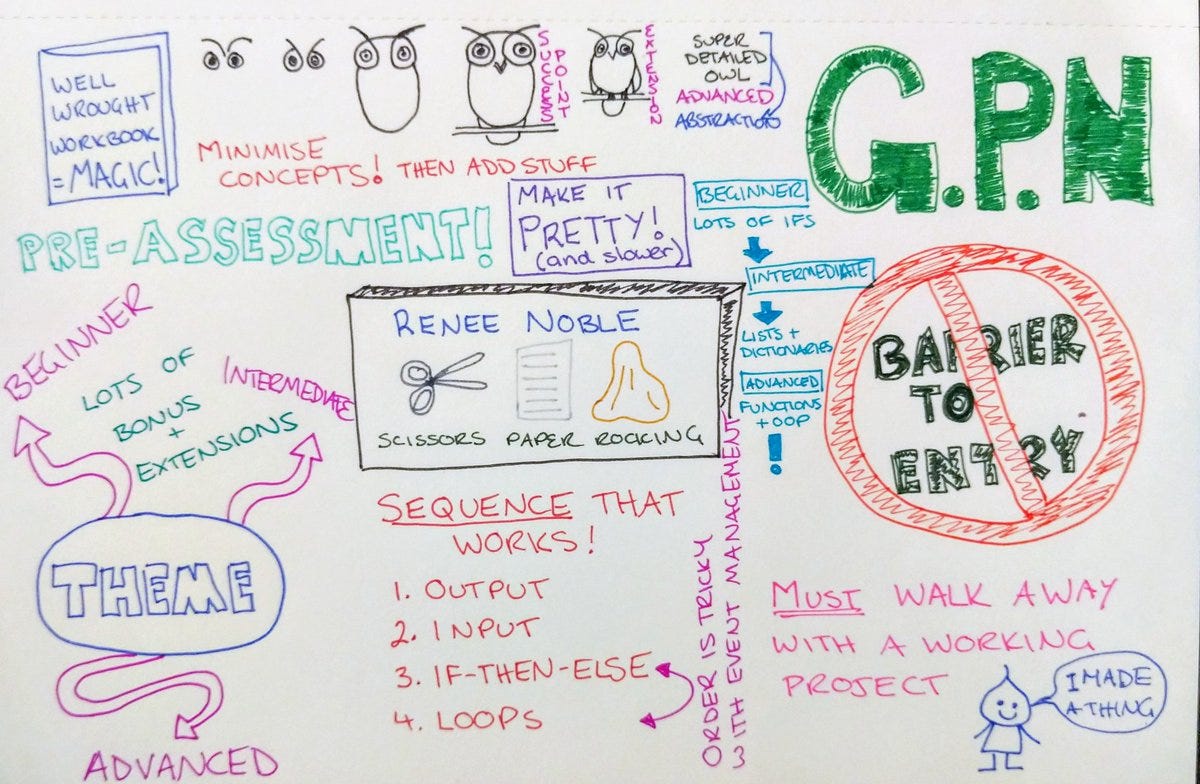 WELL
WROUGHT
WORKBOOK
= MAGIC!
SUCCESS
POINT
EXTENSION
SUPER
DETAILED
OWL
ADVANCED
ABSTRACTION
G.P.N
MINIMISE
CONCEPTS! THEN ADD STUFF
PRE-ASSESSMENT!
MAKE IT
PRETTY!
(and slower)
BEGINNER
LOTS OF IFS
INTERMEDIATE
LISTS +
DICTIONARIES
ADVANCED
FUNCTIONS
+ OOP
!
RENEE NOBLE
SCISSORS PAPER ROCKING
BARRIER
TO
ENTRY
BEGINNER
LOTS OF
BONUS
+
EXTENSIONS
INTERMEDIATE
THEME
ADVANCED
SEQUENCE THAT
WORKS!
1. OUTPUT
2. INPUT
3. IF-THEN-ELSE
4. LOOPS
ORDER IS TRICKY
WITH EVENT MANAGEMENT
MUST WALK AWAY
WITH A WORKING
PROJECT
I MADE
A THING